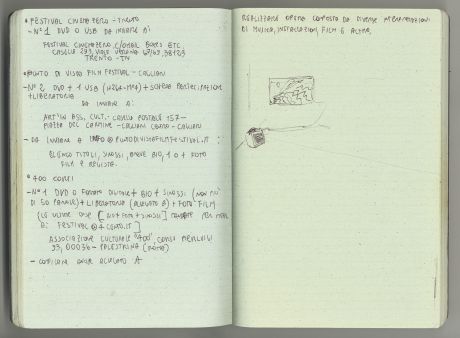 * FESTIVAL CINEMAZERO - TRENTO
- N° 1 DVD O USB DA INVIARE A:
FESTIVAL CINEMAZERO C/O
CASELLA 293, VIALE VERONA 38123
TRENTO - TN
* PUNTO DI VISTA FILM FESTIVAL - CAGLIARI
- N° 2 DVD + 1 USB + SCHEDA PARTECIPAZIONE
+ LIBERATORIA
DA INVIARE A:
ASS. CULT. - CASELLA POSTALE 157 -
PIAZZA DEL CARMINE - CAGLIARI - CAGLIARI
- DA INVIARE A INFO@PUNTODIVISTAFILMFESTIVAL.IT :
ELENCO TITOLI, SINOSSI, BREVE BIO, 1 O + FOTO
FILM E REGISTA.
* 400 CORTI
- N° 1 DVD O FORMATO DIGITALE + BIO + SINOSSI (NON PIÙ
DI 50 PAROLE) + LIBERATORIA (ALLEGATO B) + FOTO FILM
(LE ULTIME DUE [BIO + FOTO + SINOSSI] PER MAIL
A: FESTIVAL@
ASSOCIAZIONE CULTURALE "400", CORSO PIERLUIGI
93, 00036 - PALESTRINA (ROMA)
- COMPILARE ALLEGATO A
REALIZZARE OPERA COMPOSTA DA DIVERSE
DI MUSICA, INSTALLAZIONI, FILM E ALTRO.